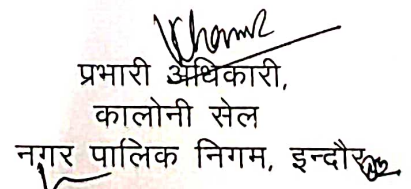 प्रभारी अधिकारी,
कालोनी सेल
नगर पालिक निगम, इन्दौर